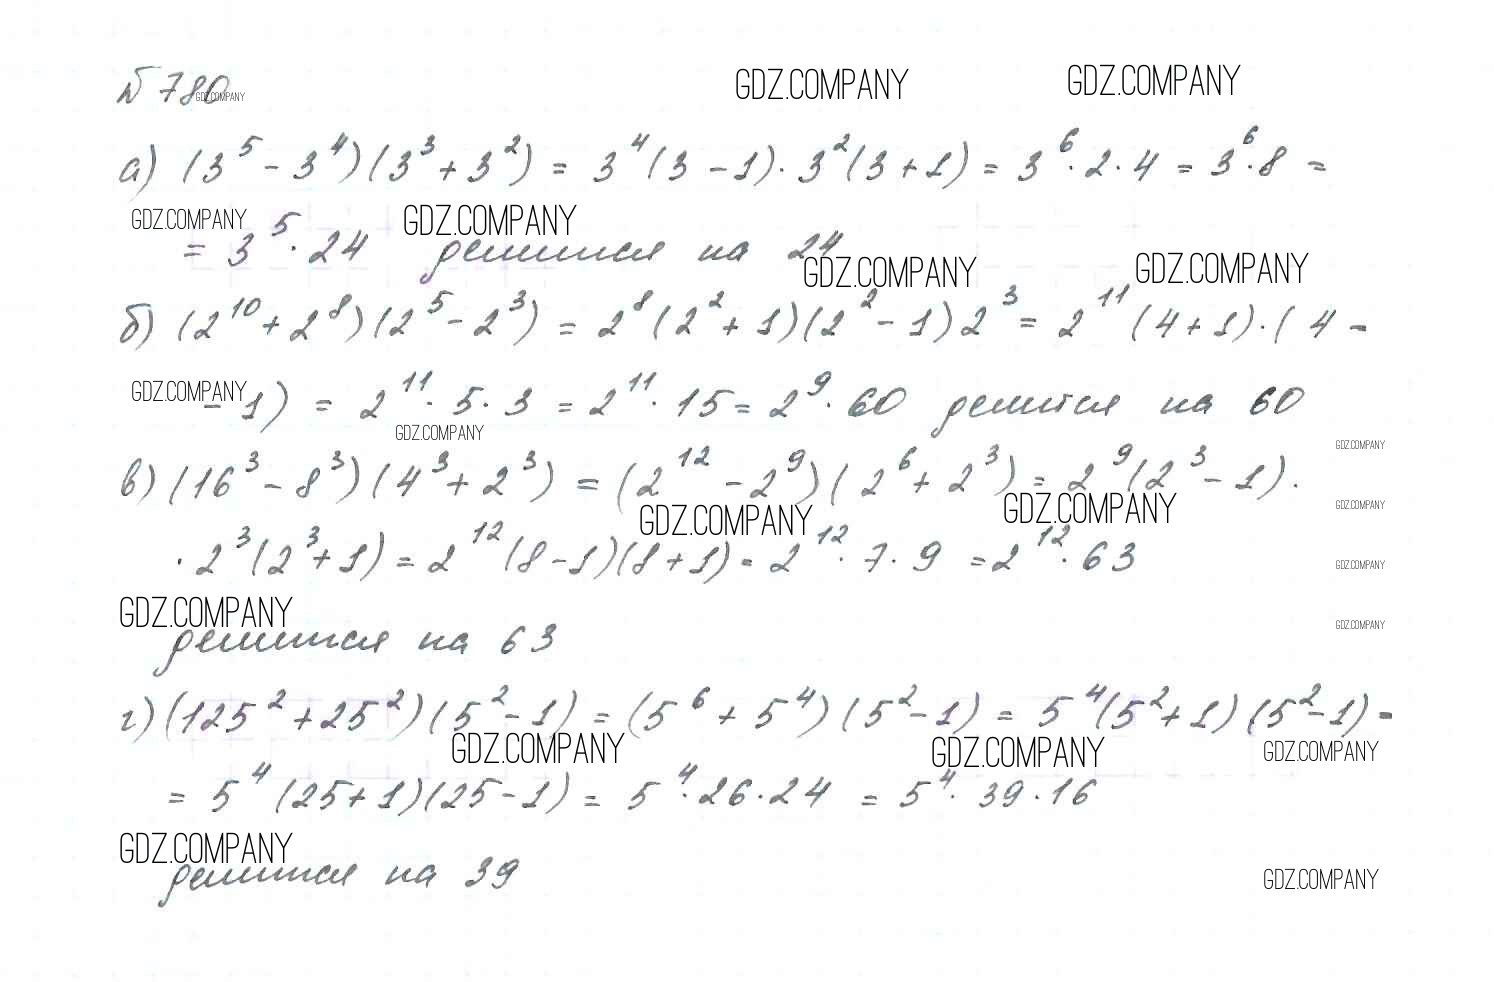 № 780
GDZ.COMPANY GDZ.COMPANY GDZ.COMPANY
а) (3⁵ - 3⁴)(3³ + 3²) = 3⁴(3 - 1)·3²(3 + 1) = 3⁶·2·4 = 3⁶·8 =
GDZ.COMPANY GDZ.COMPANY
= 3⁵·24 делится на 24
GDZ.COMPANY GDZ.COMPANY
б) (2¹⁰ + 2⁸)(2⁵ - 2³) = 2⁸(2² + 1)(2² - 1)2³ = 2¹¹(4 + 1)·(4 -
GDZ.COMPANY
- 1) = 2¹¹·5·3 = 2¹¹·15 = 2⁹·60 делится на 60
GDZ.COMPANY GDZ.COMPANY
в) (16³ - 8³)(4³ + 2³) = (2¹² - 2⁹)(2⁶ + 2³) = 2⁹(2³ - 1)·
GDZ.COMPANY GDZ.COMPANY GDZ.COMPANY
·2³(2³ + 1) = 2¹²(8 - 1)(8 + 1) = 2¹²·7·9 = 2¹²·63
GDZ.COMPANY
GDZ.COMPANY GDZ.COMPANY
делится на 63
г) (125² + 25²)(5² - 1) = (5⁶ + 5⁴)(5² - 1) = 5⁴(5² + 1)(5² - 1) =
GDZ.COMPANY GDZ.COMPANY GDZ.COMPANY
= 5⁴(25 + 1)(25 - 1) = 5⁴·26·24 = 5⁴·39·16
GDZ.COMPANY
делится на 39
GDZ.COMPANY